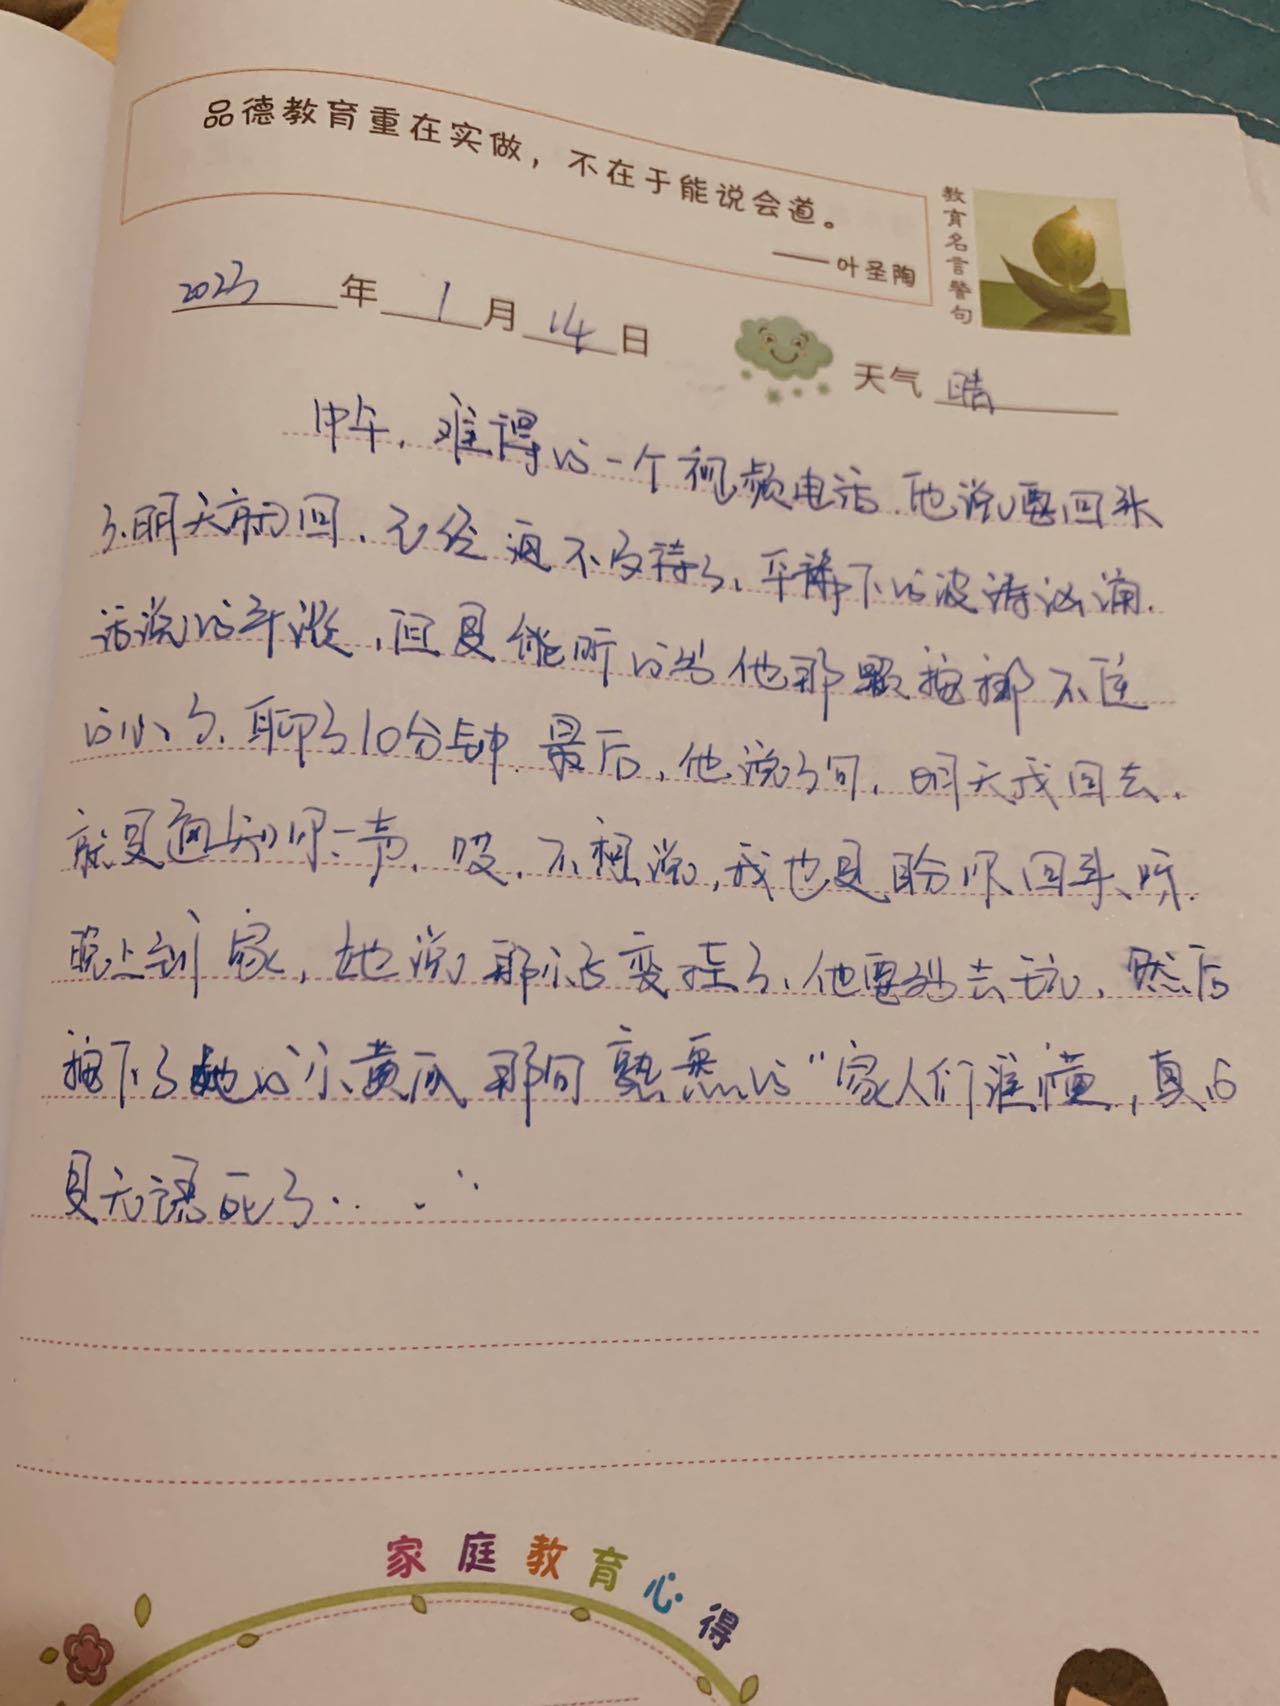 品德教育重在实做，不在于能说会道。
——叶圣陶
教育名言警句
2023年1月14日
天气 晴
中午，难得的一个视频电话.他说要回来
了.明天就回、已经迫不及待了、平静下的波涛汹涌.
话说的平淡，但是能听的出他那颗按捺不住
的心了.聊了10分钟.最后，他说了句，明天我回去，
就是通知你一声.哎.不想说，我也是盼你回来呀.
晚上到家，她说那小子变挂了、他要出去玩、然后
按下了她的小黄瓜那句熟悉的“家人们谁懂，真的
是无语死了......
家庭教育心得